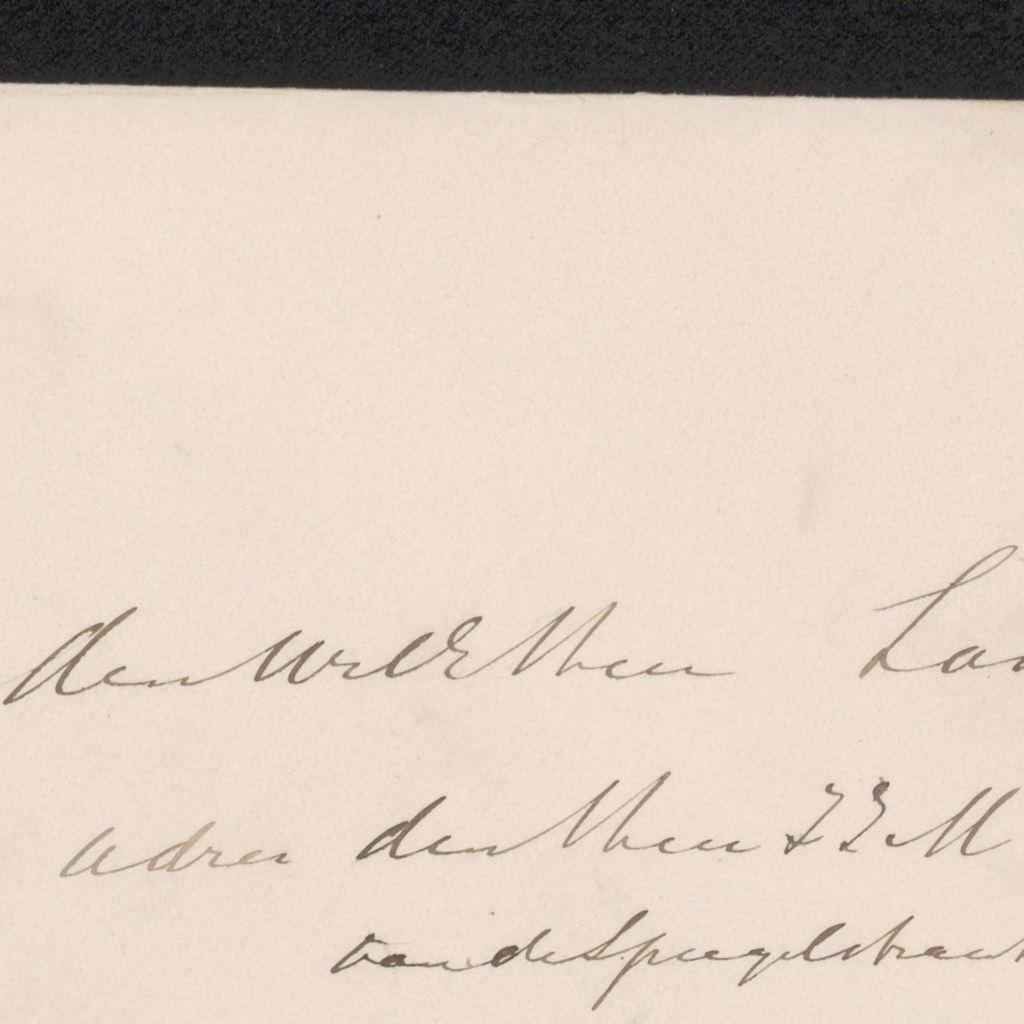 den WelE Heer Lan
adres den Heer J J M
van de Spiegelstraat